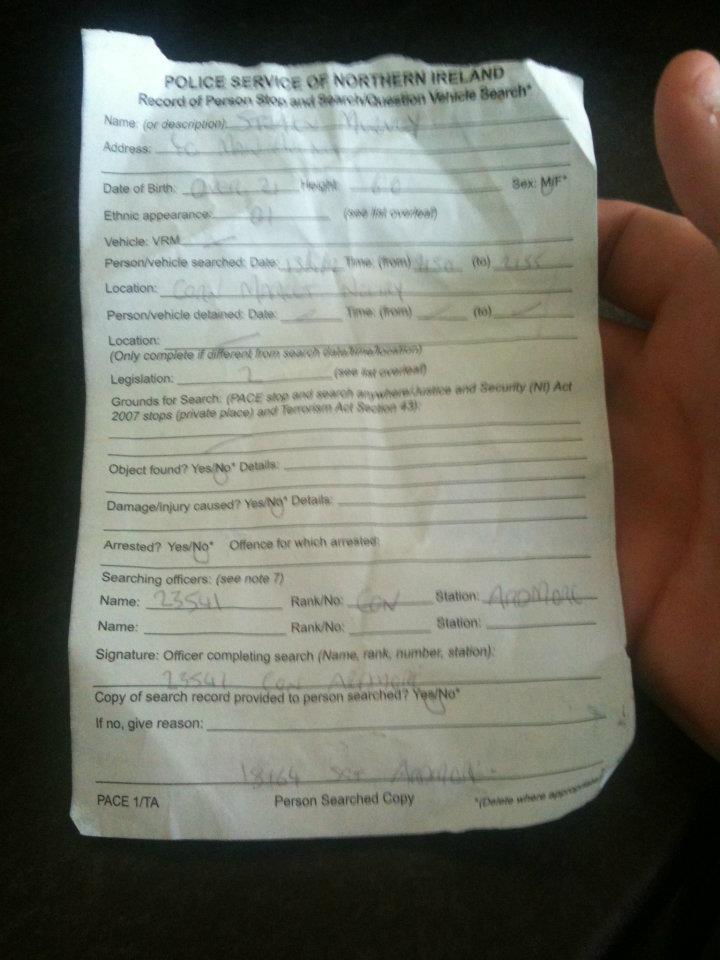 POLICE SERVICE OF NORTHERN IRELAND
Record of Person Stop and Search/Question Vehicle Search*
Name: (or description)
Address:
Date of Birth: Over 21 Height: 60 Sex: M/F*
Ethnic appearance: 01 (see list overleaf)
Vehicle: VRM
Person/vehicle searched: Date: Time: (from) (to) 2155
Location: Corn Market Newry
Person/vehicle detained: Date: Time: (from) (to)
Location:
(Only complete if different from search date/time/location)
Legislation: 2 (see list overleaf)
Grounds for Search: (PACE stop and search anywhere/Justice and Security (NI) Act
2007 stops (private place) and Terrorism Act Section 43):
Object found? Yes/No* Details:
Damage/injury caused? Yes/No* Details:
Arrested? Yes/No* Offence for which arrested:
Searching officers: (see note 7)
Name: 23541 Rank/No: CON Station: ARDMORE
Name: Rank/No: Station:
Signature: Officer completing search (Name, rank, number, station):
23541 CON ARDMORE
Copy of search record provided to person searched? Yes/No*
If no, give reason:
18164 SGT ARDMORE
PACE 1/TA Person Searched Copy *(Delete where appropriate)